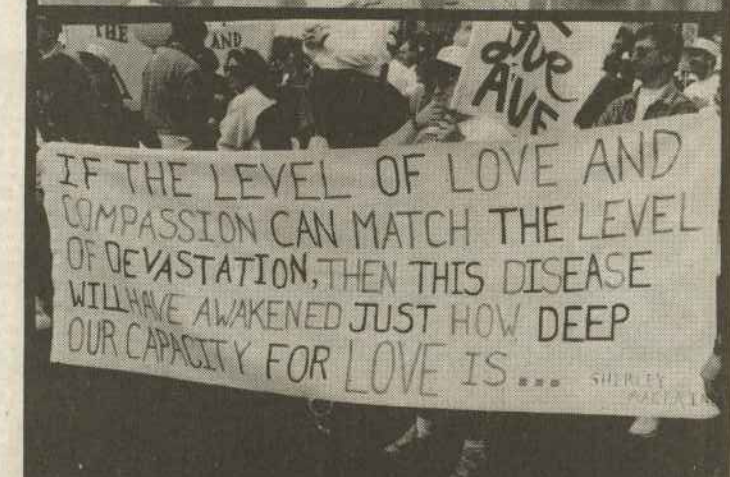 THE
AND
IF THE LEVEL OF LOVE AND
COMPASSION CAN MATCH THE LEVEL
OF DEVASTATION, THEN THIS DISEASE
WILL HAVE AWAKENED JUST HOW DEEP
OUR CAPACITY FOR LOVE IS...
SHIRLEY